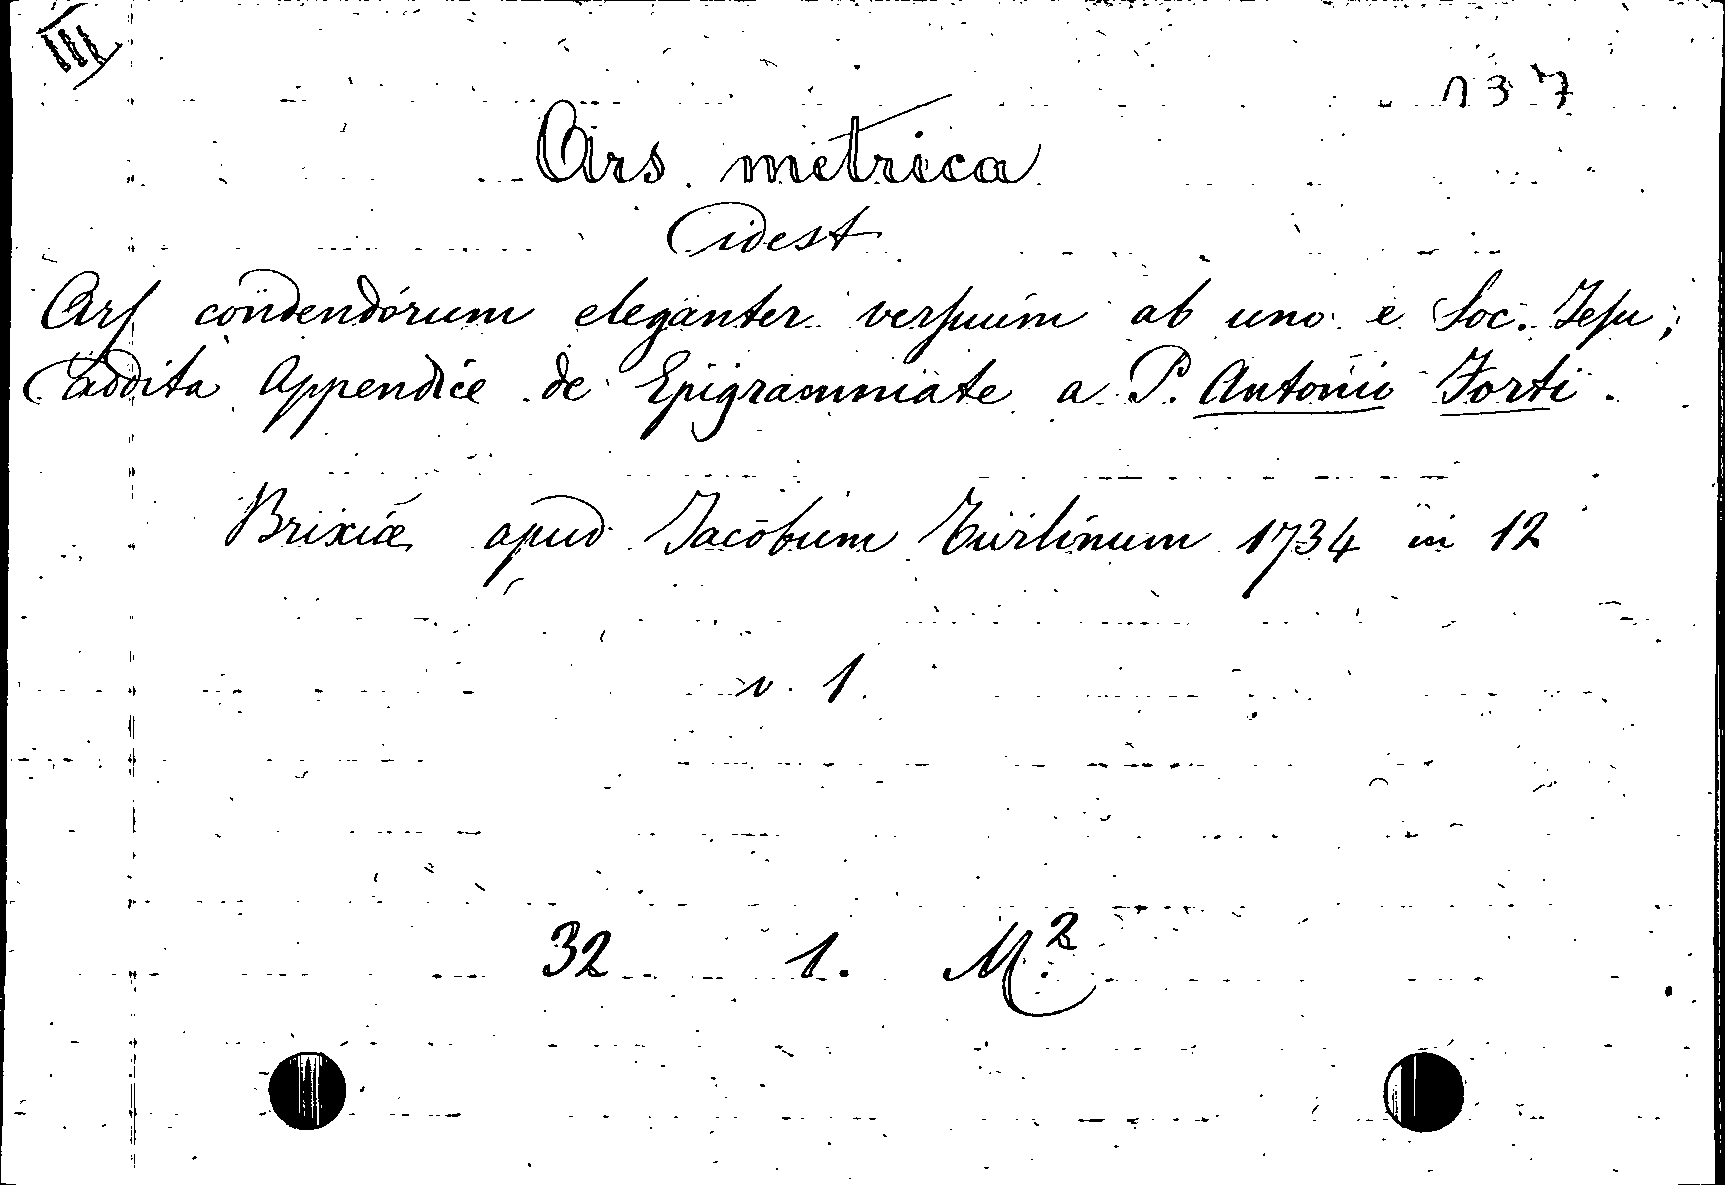 III
137
Ars metrica
idest
Ars condendorum eleganter versuum ab uno e Soc. Jesu;
addita Appendice de Epigrammate a P. Antonio Forti.
Brixiæ apud Jacobum Turlinum 1734 in 12
v. 1.
32 1. M.2